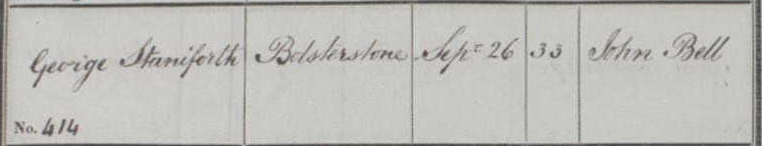 George Staniforth Bolsterstone Sepr 26 33 John Bell
No. 414